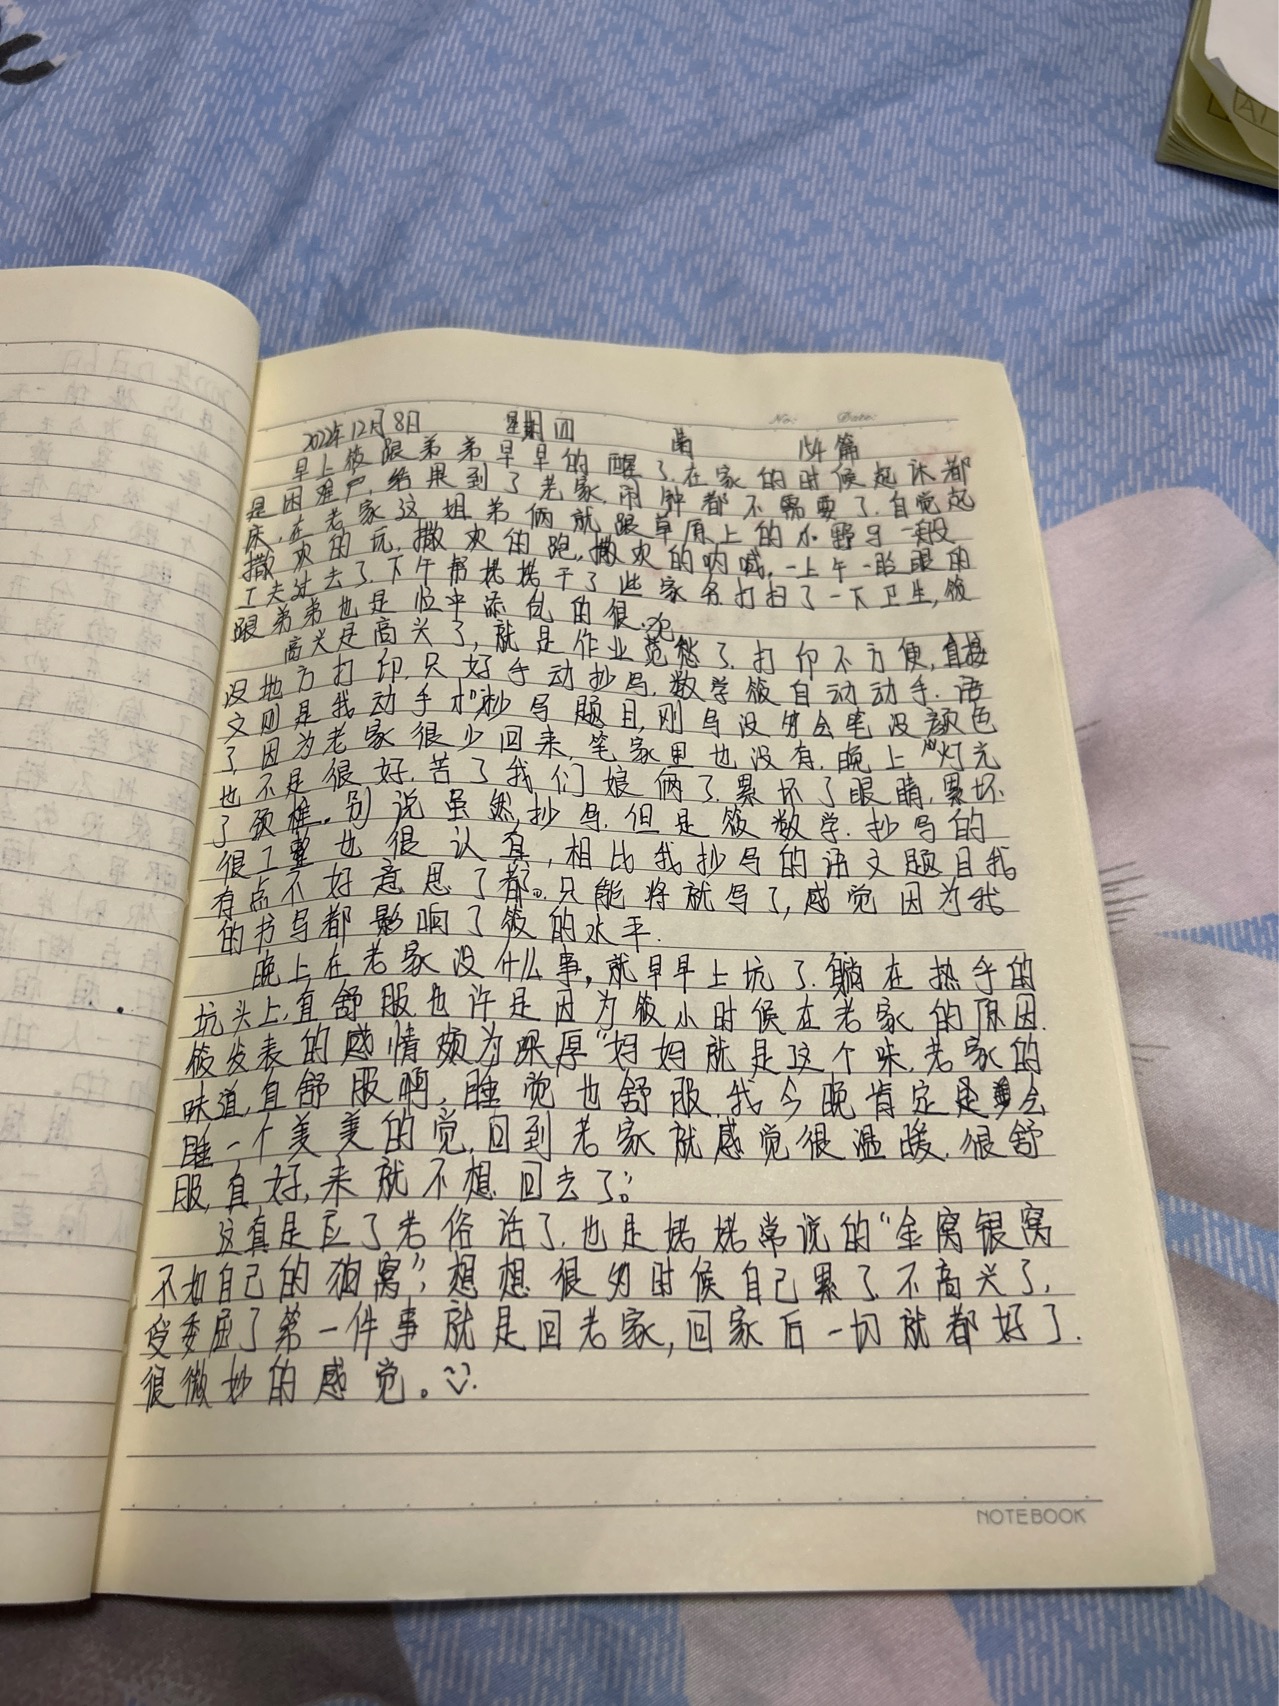 No: Date:
2022年12月8日 星期四 154篇
早上筱跟弟弟早早的醒了.在家的时候起床都
是困难户结果到了老家.闹钟都不需要了.自觉起
床,在老家这姐弟俩就跟草原上的小野马一般
撒欢的玩.撒欢的跑.撒欢的呐喊.一上午一眨眼的
工夫过去了.下午帮姥姥干了些家务.打扫了一下卫生,筱
跟弟弟也是忙中添乱的很.
高兴是高兴了,就是作业范愁了.打印不方便,直接
没地方打印.只好手动抄写.数学筱自动动手.语
文则是我动手抄写题目,刚写没分会笔没颜色
了.因为老家很少回来,笔家里也没有.晚上灯光
也不是很好.苦了我们娘俩了.累坏了眼睛.累坏
了颈椎。别说虽然抄写.但是筱数学.抄写的
很工整也很认真,相比我抄写的语文题目我
有点不好意思了都。只能将就写了,感觉因为我
的书写都影响了筱的水平.
晚上在老家没什么事,就早早上坑了.躺在热乎的
坑头上,真舒服也许是因为筱小时候在老家的原因.
筱发表的感情颇为深厚"妈妈就是这个味.老家的
味道,真舒服啊,睡觉也舒服.我今晚肯定是会
睡一个美美的觉.回到老家就感觉很温暖.很舒
服,真好,来就不想回去了。"
这真是应了老俗话了.也是姥姥常说的"金窝银窝
不如自己的狗窝",想想很多时候自己累了不高兴了.
受委屈了第一件事就是回老家,回家后一切就都好了.
很微妙的感觉。
NOTEBOOK